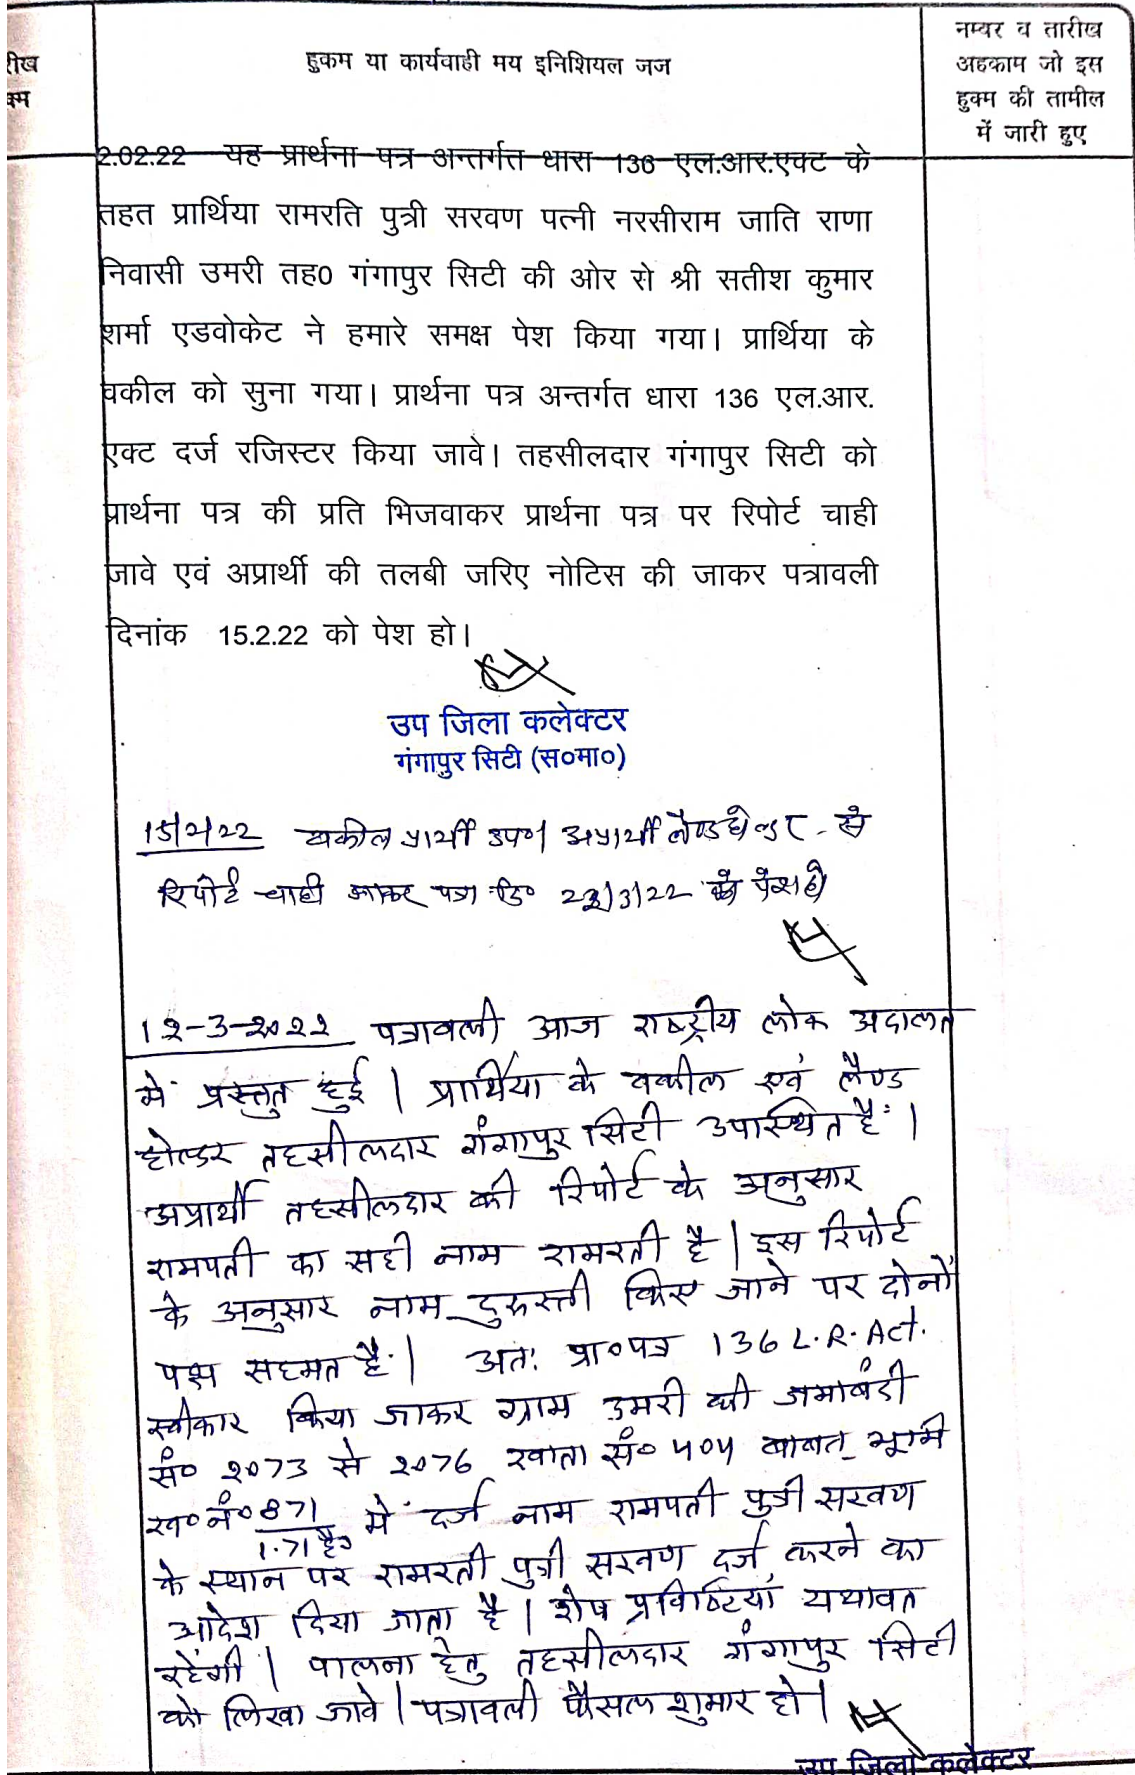 रीख
क्म
हुकम या कार्यवाही मय इनिशियल जज
नम्बर व तारीख
अहकाम जो इस
हुक्म की तामील
में जारी हुए
2.02.22 यह प्रार्थना पत्र अन्तर्गत धारा 136 एल.आर.एक्ट के
तहत प्रार्थिया रामरति पुत्री सरवण पत्नी नरसीराम जाति राणा
निवासी उमरी तह0 गंगापुर सिटी की ओर से श्री सतीश कुमार
शर्मा एडवोकेट ने हमारे समक्ष पेश किया गया। प्रार्थिया के
वकील को सुना गया। प्रार्थना पत्र अन्तर्गत धारा 136 एल.आर.
एक्ट दर्ज रजिस्टर किया जावे। तहसीलदार गंगापुर सिटी को
प्रार्थना पत्र की प्रति भिजवाकर प्रार्थना पत्र पर रिपोर्ट चाही
जावे एवं अप्रार्थी की तलबी जरिए नोटिस की जाकर पत्रावली
दिनांक 15.2.22 को पेश हो।
उप जिला कलेक्टर
गंगापुर सिटी (स०मा०)
15/2/22 वकील प्रार्थी उप० अप्रार्थी लैण्ड होल्डर से
रिपोर्ट चाही जाकर पत्रा० दि० 23/3/22 को पेश हो
12-3-2022 पत्रावली आज राष्ट्रीय लोक अदालत
में प्रस्तुत हुई। प्रार्थिया के वकील एवं लैण्ड
होल्डर तहसीलदार गंगापुर सिटी उपस्थित हैं।
अप्रार्थी तहसीलदार की रिपोर्ट के अनुसार
रामपती का सही नाम रामरती है। इस रिपोर्ट
के अनुसार नाम दुरुस्ती किए जाने पर दोनों
पक्ष सहमत हैं। अतः प्रा०पत्र 136 L.R. Act.
स्वीकार किया जाकर ग्राम उमरी की जमाबंदी
सं० 2073 से 2076 खाता सं० 404 बाबत भूमि
ख० नं० 871/1.71 है० में दर्ज नाम रामपती पुत्री सरवण
के स्थान पर रामरती पुत्री सरवण दर्ज करने का
आदेश दिया जाता है। शेष प्रविष्टियां यथावत
रहेंगी। पालना हेतु तहसीलदार गंगापुर सिटी
को लिखा जावे। पत्रावली फैसल शुमार हो।
उप जिला कलेक्टर